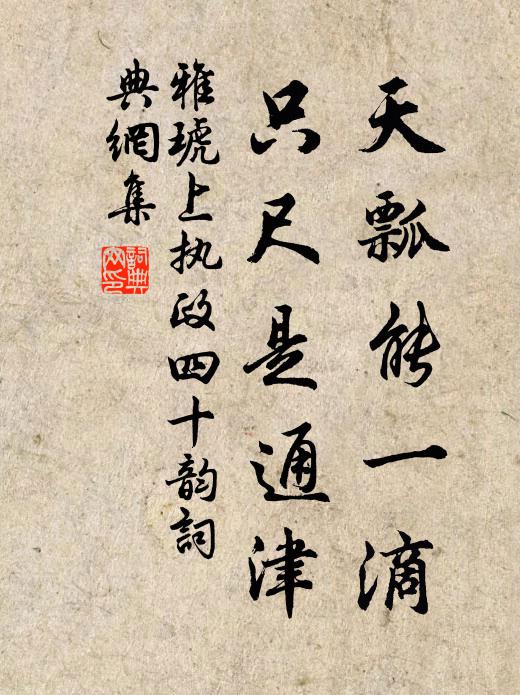 天瓢能一滴
只尺是通津
雅琥上执政四十韵詞
典網集
詞典
网印